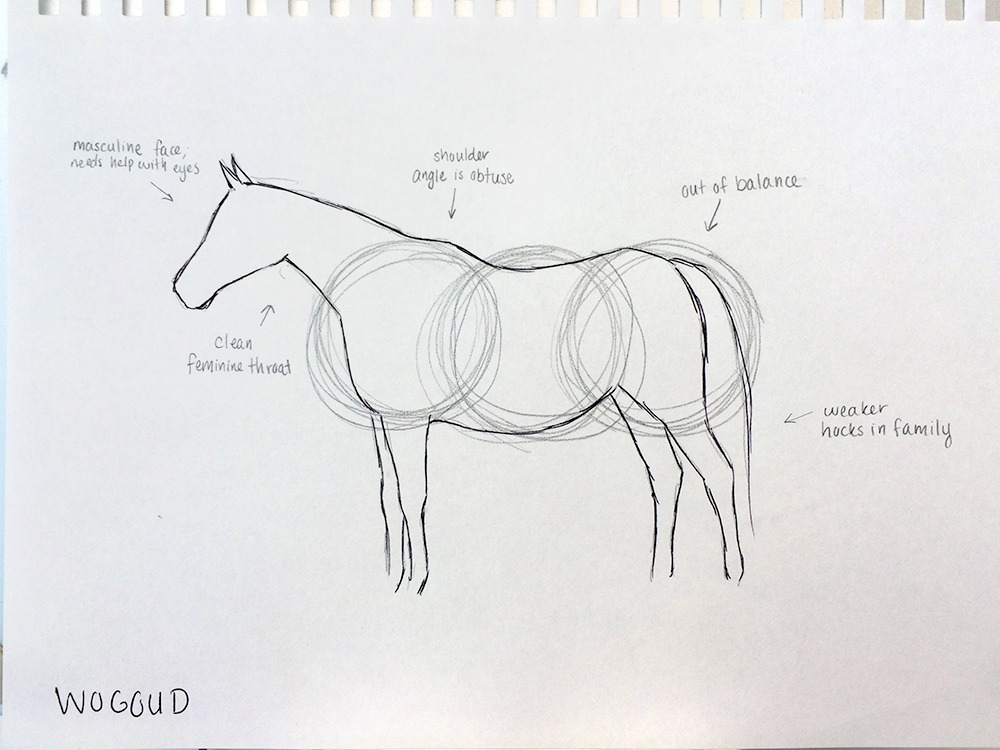 masculine face;
needs help with eyes
shoulder
angle is obtuse
out of balance
clean
feminine throat
weaker
hocks in family
WOGOUD